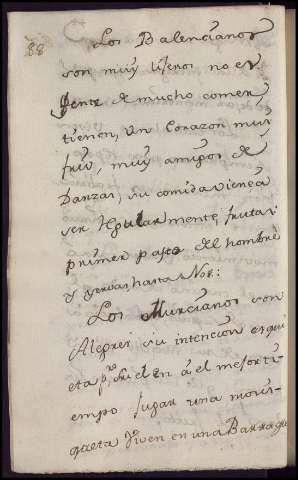 88
Los Balencianos
son muy lijeros no es
Jente de mucho comer
tienen, un Corazon muy
frio, muy amigos de
Danzas, su comida viene á
ser Regularmente, frutas:
primer pasto del hombre
y yervas, hasta Noe:
Los Murcianos son
Alegres su intencion esqui
eta pr. suelen á el mejor ti-
empo jugar una moris-
queta
viven en una Barraqu